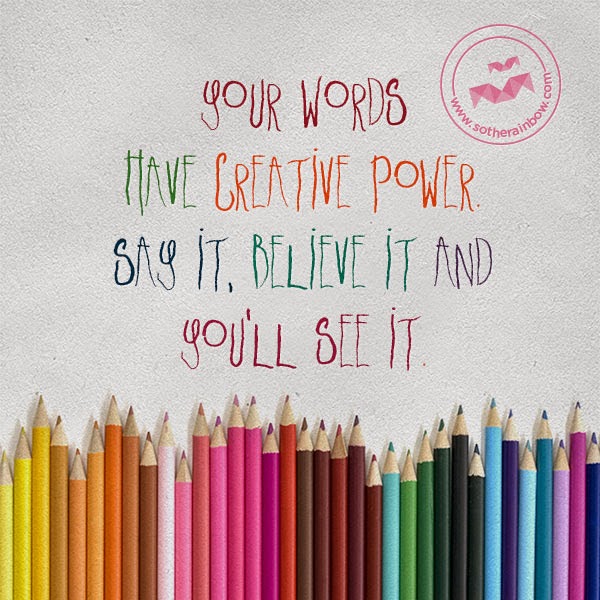 www.sotherainbow.com
YOUR WORDS
HAVE CREATIVE POWER.
SAY iT, BELiEVE iT AND
YOU'LL SEE iT.